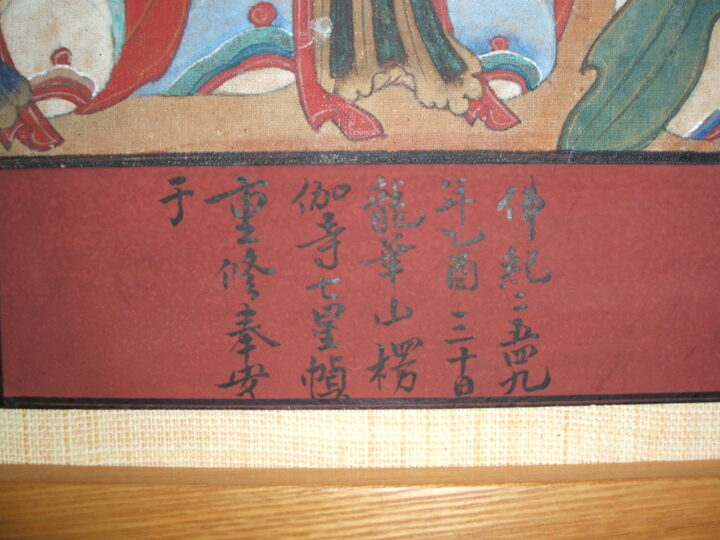 佛紀二五四九
年乙酉三十日
龍華山楞
伽寺七星幀
重修奉安
于